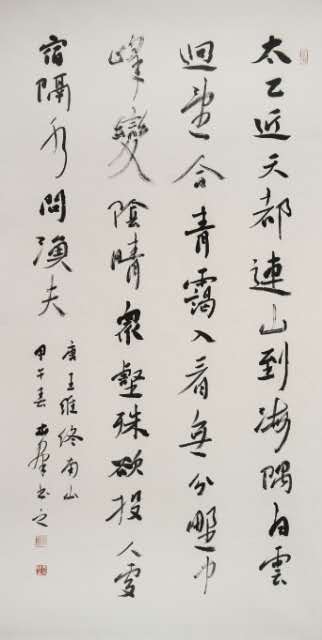 太乙近天都連山到海隅白雲
迴望合青靄入看無分野中
峰變陰晴眾壑殊欲投人處
宿隔水問漁夫
唐王維終南山
甲午春書之